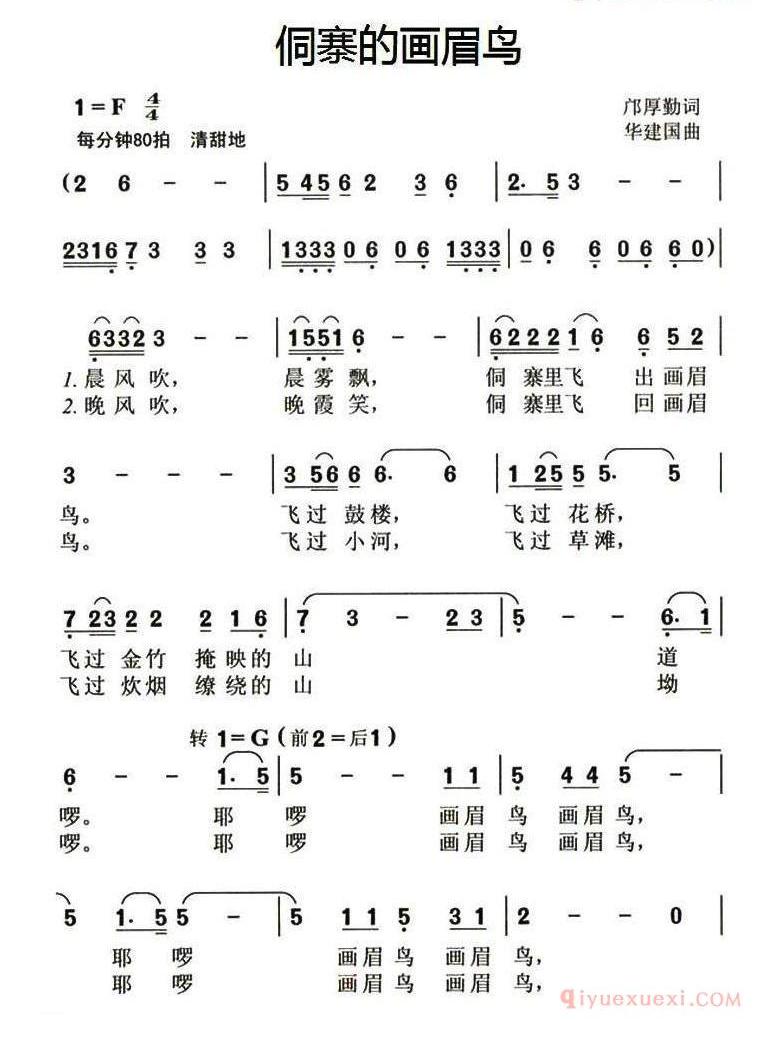 侗寨的画眉鸟
1=F 4/4
邝厚勤词
每分钟80拍 清甜地
华建国曲
(2 6 - - | 5 4 5 6 2 3 6 | 2· 5 3 - - |
2 3 1 6 7 3 3 3 | 1 3 3 3 0 6 0 6 1 3 3 3 | 0 6 6 0 6 6 0)|
6 3 3 2 3 - - | 1 5 5 1 6 - - | 6 2 2 2 1 6 6 5 2 |
1.晨风吹, 晨雾飘, 侗寨里飞 出画眉
2.晚风吹, 晚霞笑, 侗寨里飞 回画眉
3 - - - | 3 5 6 6 6· 6 | 1 2 5 5 5· 5 |
鸟。 飞过鼓楼, 飞过花桥,
鸟。 飞过小河, 飞过草滩,
7 2 3 2 2 2 1 6 | 7 3 - 2 3 | 5 - - 6· 1 |
飞过金竹 掩映的山 道
飞过炊烟 缭绕的山 坳
转1=G(前2=后1)
6 - - 1· 5 | 5 - - 1 1 | 5 4 4 5 - |
啰。 耶 啰 画眉鸟 画眉鸟,
啰。 耶 啰 画眉鸟 画眉鸟,
5 1· 5 5 - | 5 1 1 5 3 1 | 2 - - 0 |
耶 啰 画眉鸟画眉鸟,
耶 啰 画眉鸟画眉鸟,
qiyuexuexi.com